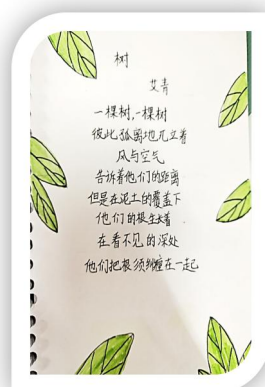 树
艾青
一棵树,一棵树
彼此孤离地兀立着
风与空气
告诉着他们的距离
但是在泥土的覆盖下
他们的根生长着
在看不见的深处
他们把根须纠缠在一起